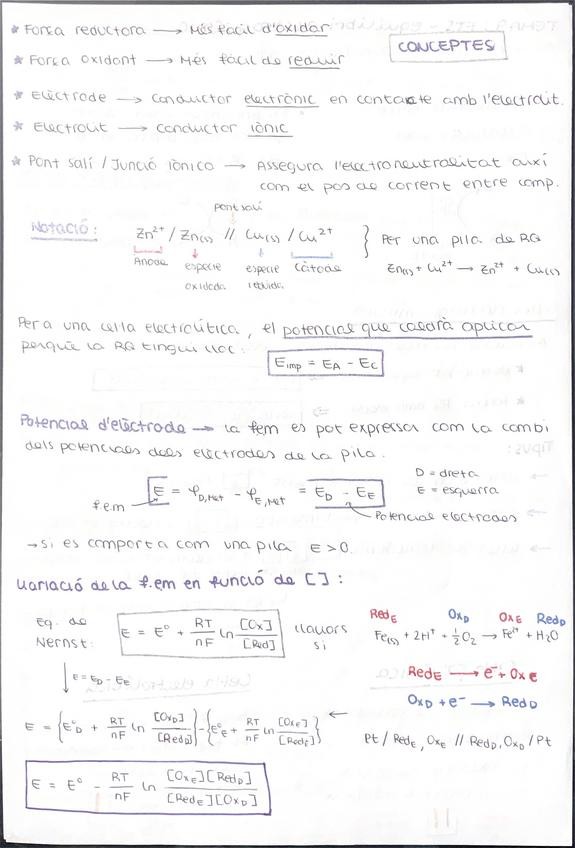 * Força reductora → Més fàcil d'oxidar
CONCEPTES
* Força oxidant → Més fàcil de reduir
* Elèctrode → conductor electrònic en contacte amb l'electròlit.
* Electròlit → conductor iònic
* Pont salí / Junció iònica → Assegura l'electroneutralitat així
com el pas de corrent entre comp.
pont salí
Notació: Zn²⁺ / Zn(s) // Cu(s) / Cu²⁺ } Per una pila de RQ
Ànode espècie espècie Càtode Zn(s) + Cu²⁺ → Zn²⁺ + Cu(s)
oxidada reduida
Per a una cel·la electrolítica, el potencial que caldrà aplicar
perquè la RQ tingui lloc:
E imp = E_A - E_C
Potencial d'elèctrode → la fem es pot expressar com la combi
dels potencials dels elèctrodes de la pila.
D = dreta
E = φ_D,Met - φ_E,Met = E_D - E_E E = esquerra
f.e.m Potencial elèctrodes
→ si es comporta com una pila E > 0.
Variació de la f.em en funció de [ ] :
Red_E Ox_D Ox_E Red_D
Eq. de E = E° + RT/nF ln [Ox]/[Red] llavors Fe(s) + 2H⁺ + ½O₂ → Fe²⁺ + H₂O
Nernst: si
E = E_D - E_E Red_E → e⁻ + Ox_E
Ox_D + e⁻ → Red_D
E = {E°_D + RT/nF ln [Ox_D]/[Red_D]} - {E°_E + RT/nF ln [Ox_E]/[Red_E]} ←
Pt / Red_E, Ox_E // Red_D, Ox_D / Pt
E = E° - RT/nF ln [Ox_E][Red_D]/[Red_E][Ox_D]